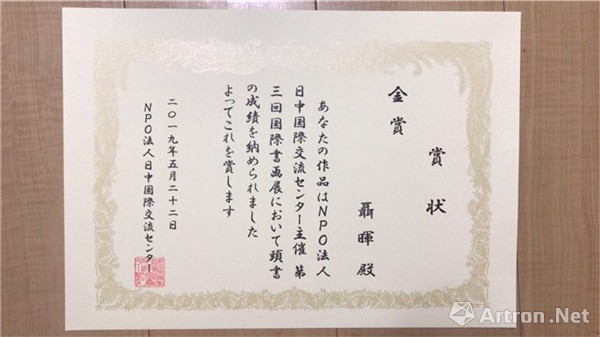 賞状
聶暉 殿
金賞
あなたの作品はNPO法人
日中国際交流センター主催 第
三回国際書画展において頭書
の成績を納められました
よってこれを賞します
二〇一九年五月二十二日
NPO法人日中国際交流センター
Artron.Net